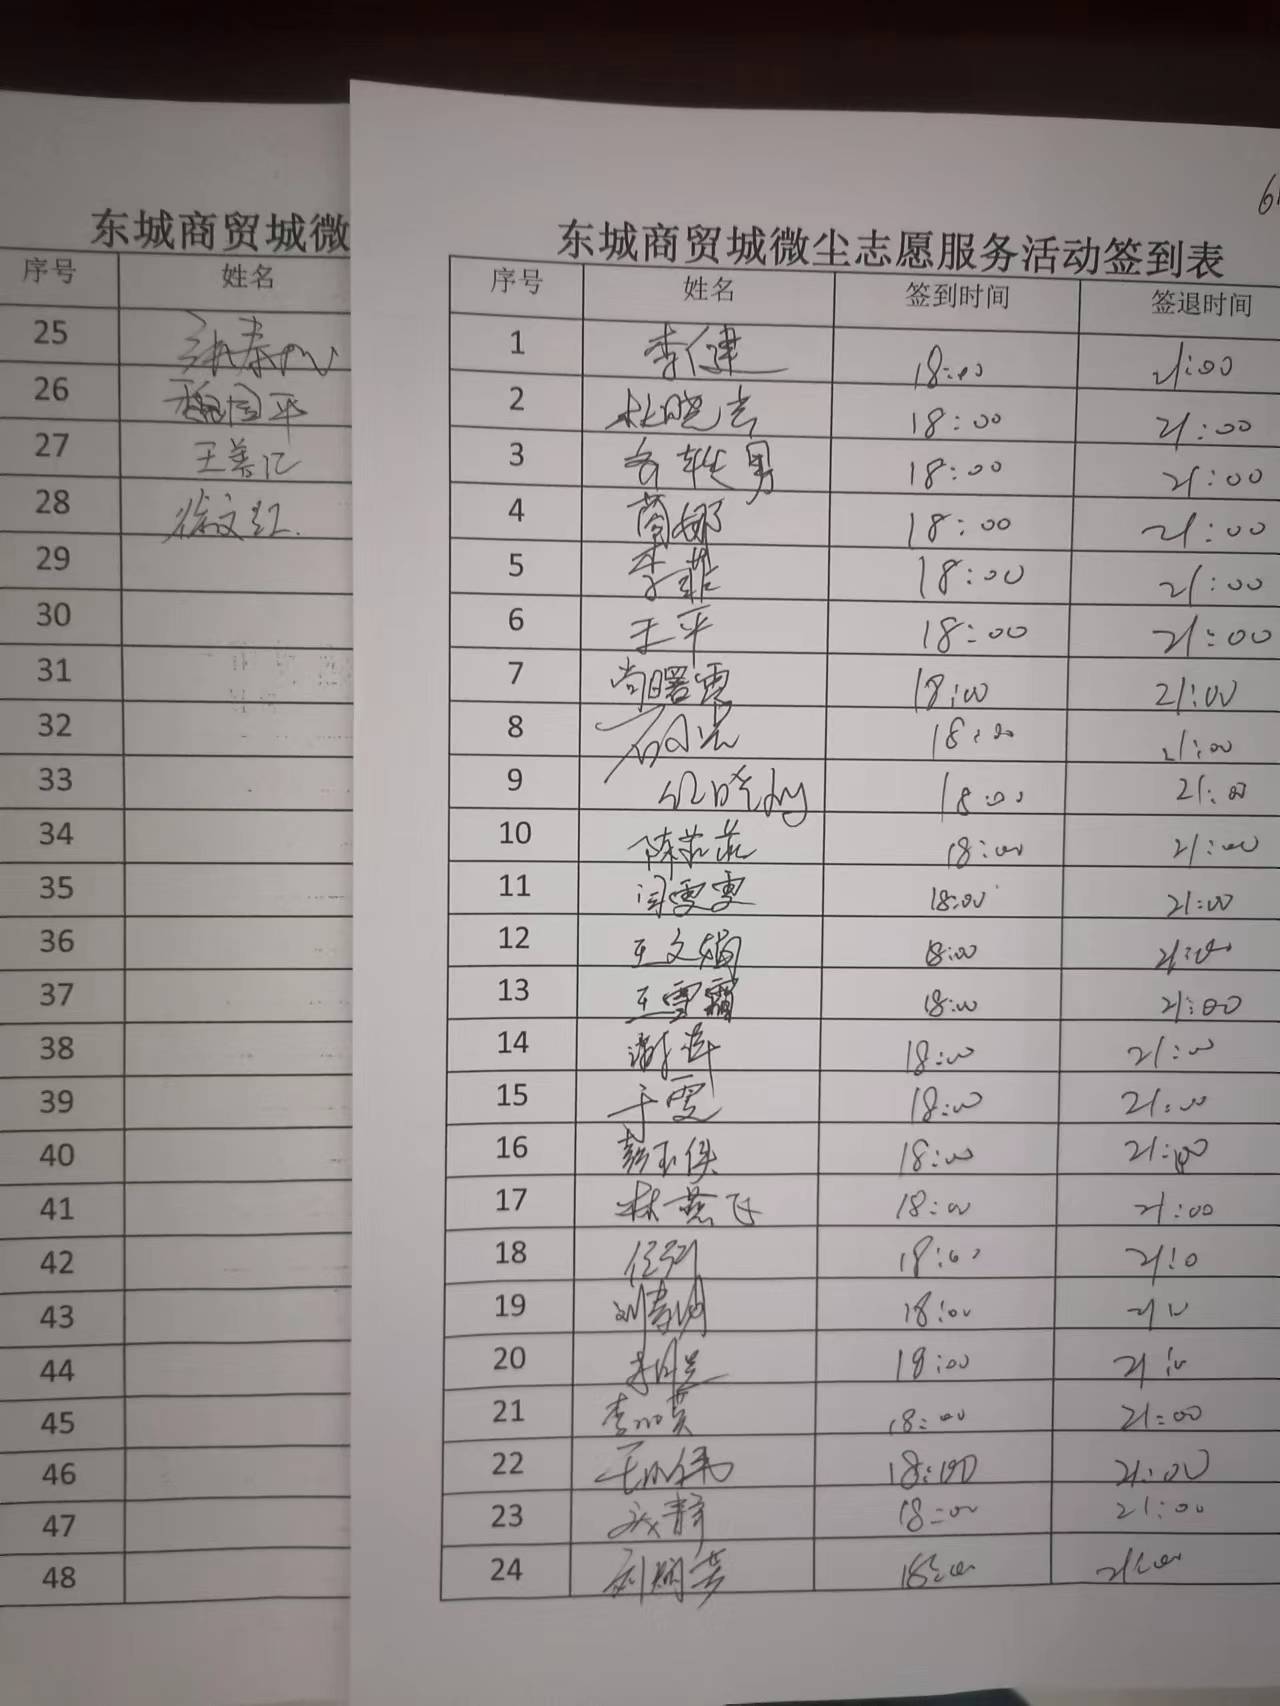 东城商贸城微
序号 姓名
25
26 魏国平
27 王美江
28 徐文红
29
30
31
32
33
34
35
36
37
38
39
40
41
42
43
44
45
46
47
48
东城商贸城微尘志愿服务活动签到表
序号 姓名 签到时间 签退时间
1 李健 18:00 21:00
2 杜晓 18:00 21:00
3 18:00 21:00
4 18:00 21:00
5 李菲 18:00 21:00
6 王平 18:00 21:00
7 尚曙霞 18:00 21:00
8 18:00 21:00
9 18:00 21:00
10 陈 18:00 21:00
11 闫雯雯 18:00 21:00
12 王文娟 18:00 21:00
13 王雪霜 18:00 21:00
14 谢萍 18:00 21:00
15 于雯 18:00 21:00
16 彭玉侠 18:00 21:00
17 林燕飞 18:00 21:00
18 18:00 21:0
19 18:00 21
20 18:00 21:00
21 李 18:00 21:00
22 王小伟 18:00 21:00
23 静 18:00 21:00
24 刘 芳 18:00 21:00